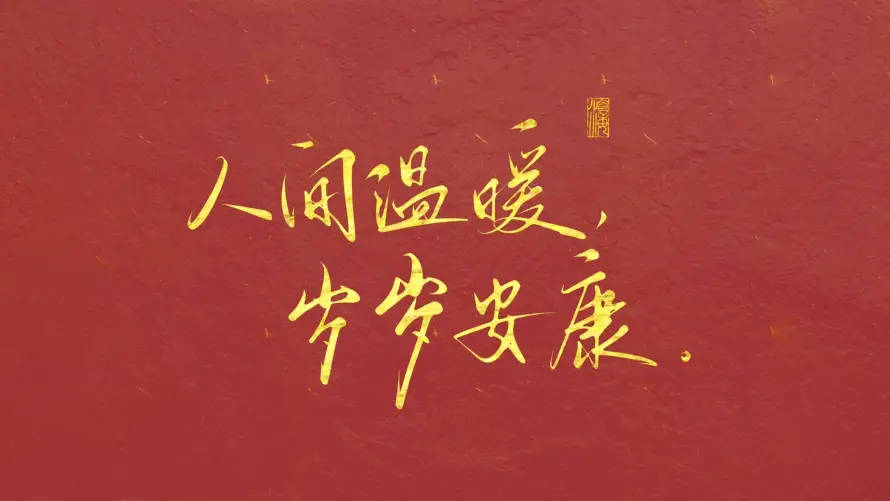 人间温暖，
岁岁安康.